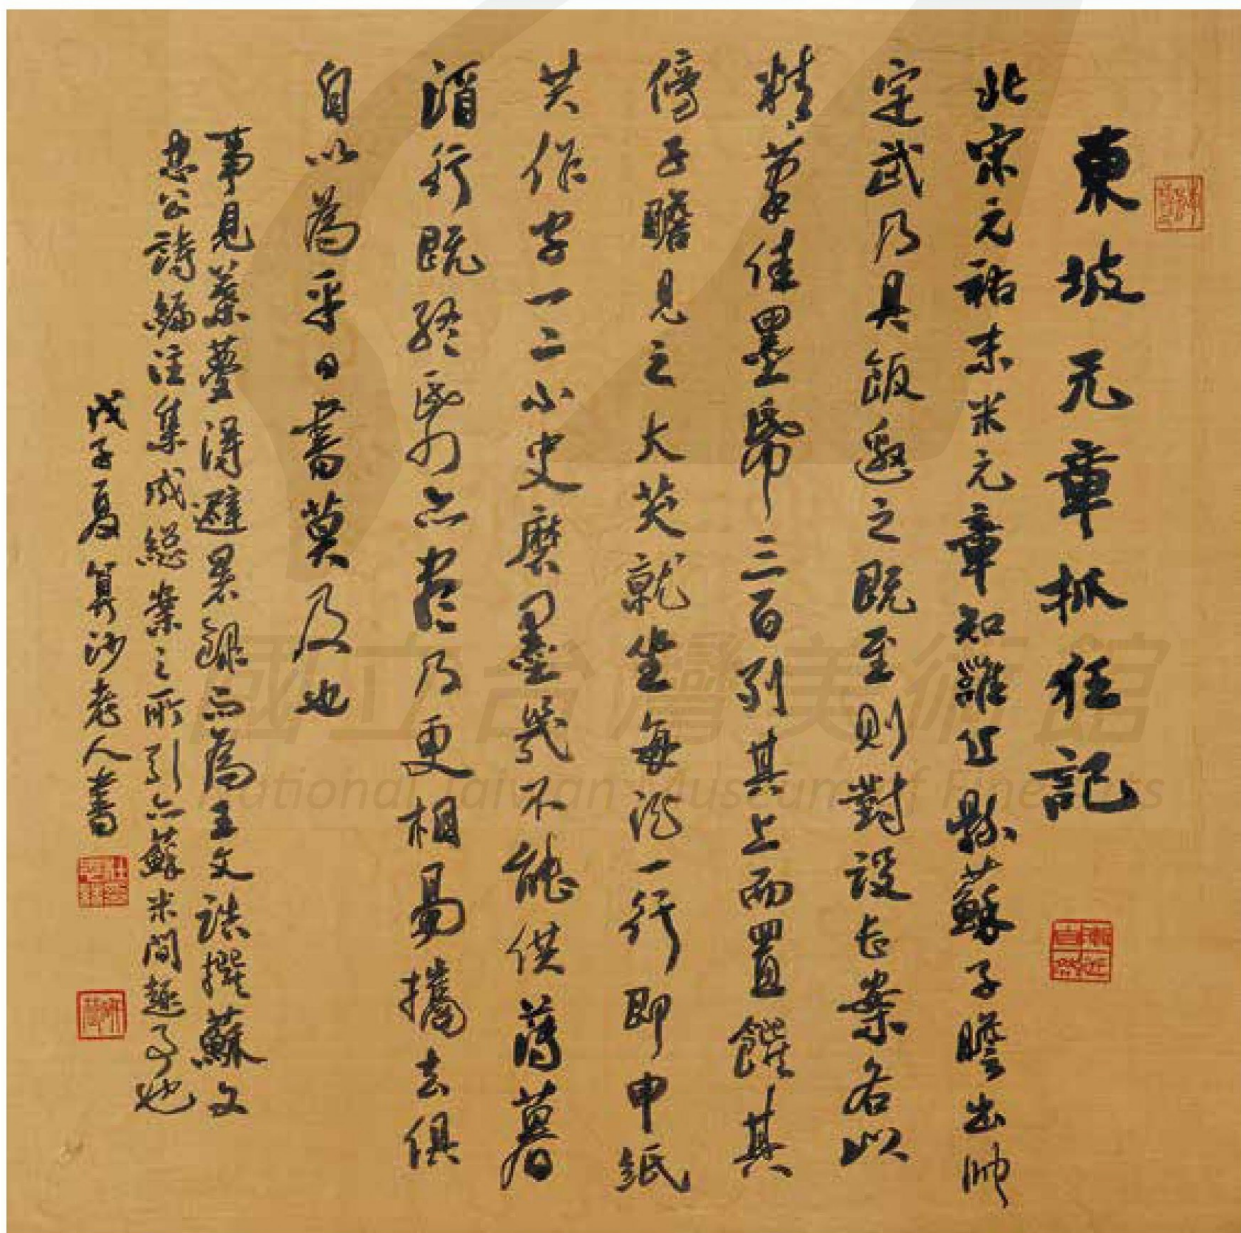 東坡元章抓狂記
北宋元祐末米元章知雍丘縣蘇子瞻出帥
定武乃具飯邀之既至則對設長案各以
精筆佳墨帋三百列其上而置饌其
傍子瞻見之大笑就坐每酒一行即申紙
共作字一二小史磨墨幾不能供薄暮
酒行既終帋亦盡乃更相易攜去俱
自以為平日書莫及也
事見葉夢得避暑錄而為王文誥撰蘇文
忠公詩編注集成總案之所引亦蘇米間趣事也
戊子夏算沙老人書
國立台灣美術館
National Taiwan Museum of Fine Arts